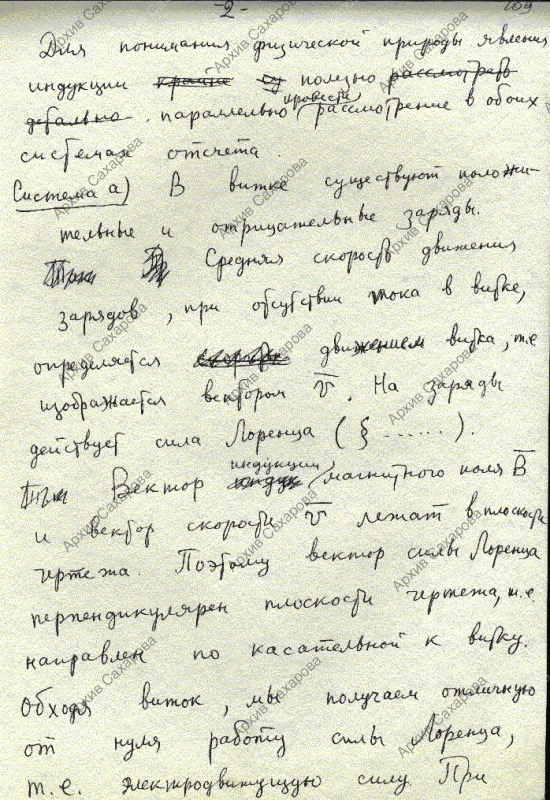 -2-
109
Для понимания физической природы явления
индукции крайне полезно рассмотреть
детально. параллельно провести рассмотрение в обоих
системах отсчета.
Система а) В витке существуют положи-
тельные и отрицательные заряды.
Средняя скорость движения
зарядов, при отсутствии тока в витке,
определяется движением витка, т.е
изображается вектором v̅. На заряды
действует сила Лоренца (§ ......).
Вектор индукции магнитного поля B̅
и вектор скорости v̅ лежат в плоскости
чертежа. Поэтому вектор силы Лоренца
перпендикулярен плоскости чертежа, т.е.
направлен по касательной к витку.
Обходя виток, мы получаем отличную
от нуля работу силы Лоренца,
т.е. электродвижущую силу. При
Архив Сахарова